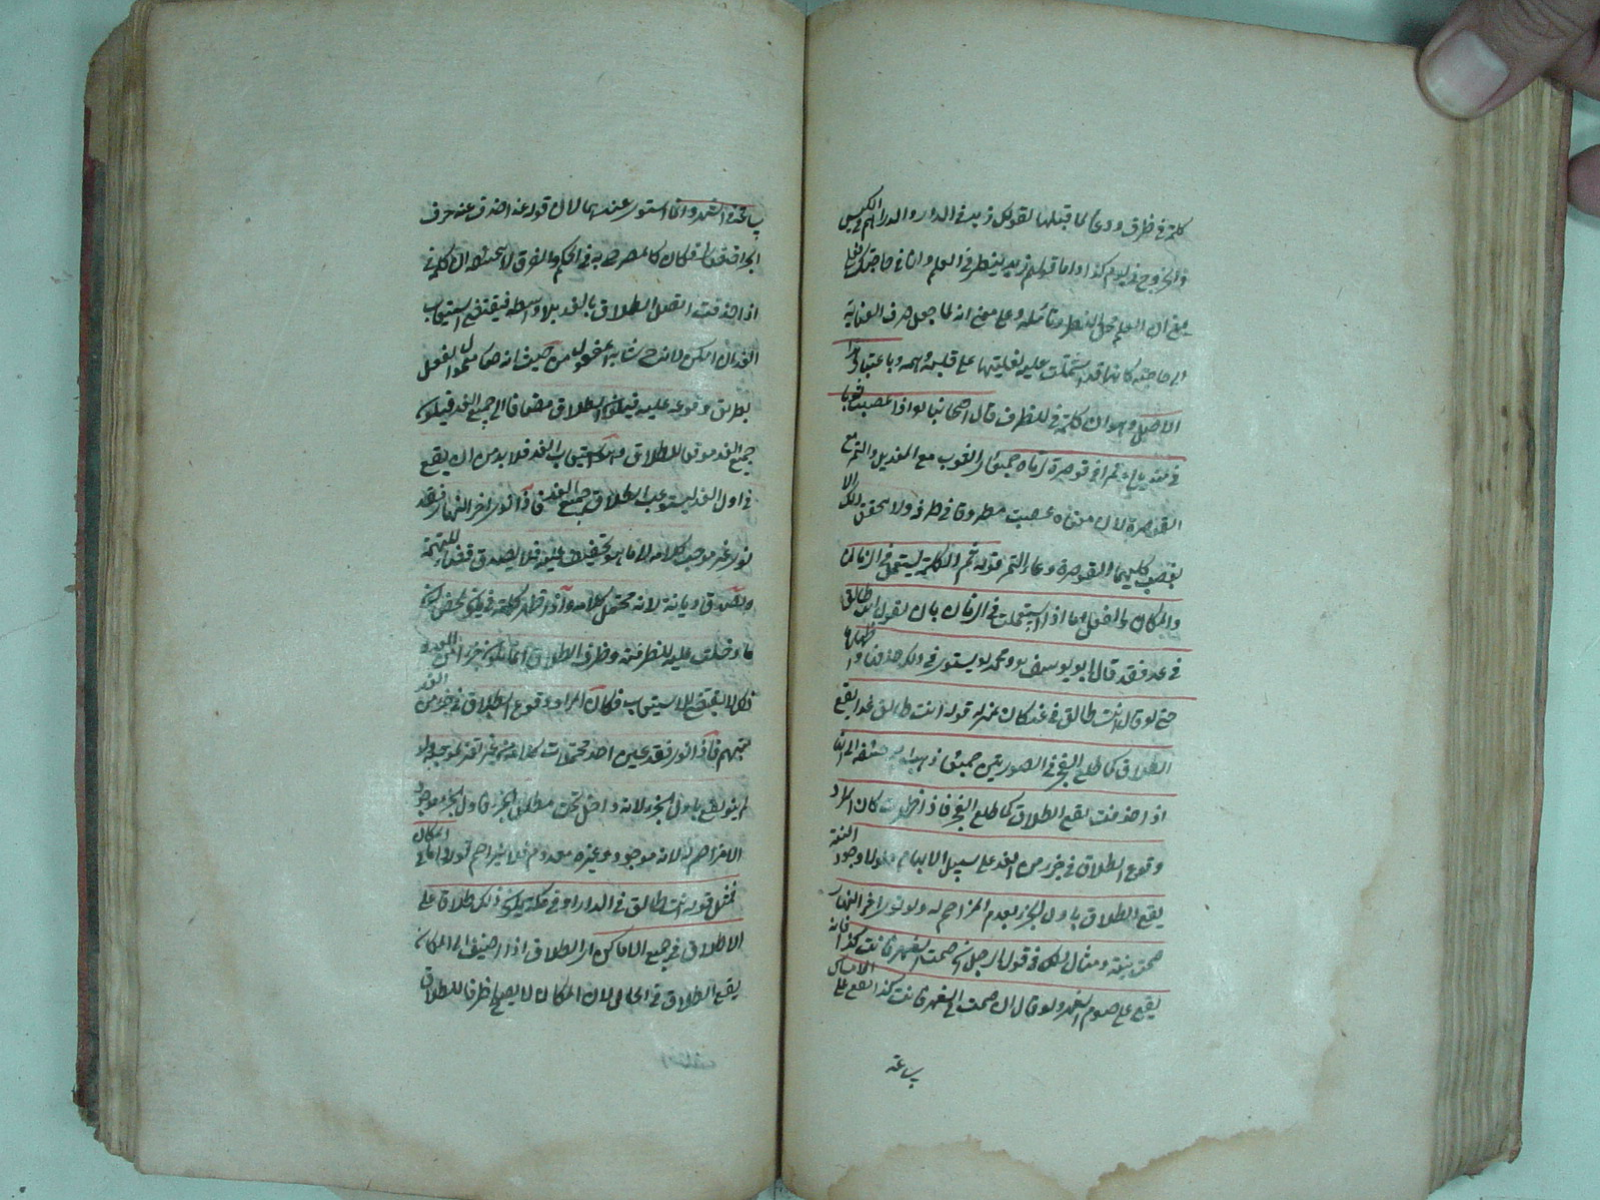 كلمة في ظرف ووعا لما قبلها لقولك زيد في الدار والدراهم في الكيس
والخروج في يوم كذا واما قولهم زيد ينظر في العلم وانا في حاجتك فعلى
معنى ان العلم محل للنظر وتأمله وعلى معنى انه لما جعل صرف العناية
الى حاجته كانها قد اشتملت عليه لغلبتها على قلبه وهمه وباعتبار هذا
الاصل وهو ان كلمة في للظرف قال اصحابنا لو اذا غصبت ثوبا
في منديل او تمرا في قوصرة لزماه جميعا اي الثوب مع المنديل والتمر مع
القوصرة لان معناه غصبت مظروفا في ظرف ولا يتحقق ذلك الا
بغصب كليهما القوصرة وعاء التمر قوله ثم الكلمة يستعمل في الزمان
والمكان والفعل اما اذا استعملت في الزمان بان يقول انت طالق
في غد فقد قال ابو يوسف ومحمد يستوي في ذلك حذفها واظهارها
حتى لو قال انت طالق في غد كان بمنزلة قوله انت طالق غدا يقع
الطلاق كما طلع الفجر في الصورتين جميعا وذهب ابو حنيفة الى انها
اذا حذفت يقع الطلاق كما طلع الفجر فاذا اظهرت كان المراد
وقوع الطلاق في جزء من الغد على سبيل الابهام فلولا وجود النية
يقع الطلاق باول الجزء لعدم المزاحم له ولو نوى اخر النهار
صحت نيته ومثال ذلك في قول الرجل ان صمت الشهر فانت كذا فانه
يقع على صوم الشهر ولو قال ان صمت في الشهر فانت كذا يقع على الامساك
ساعة
في الشهر وانما استوى عندهما لان قوله غدا حذف عنه حرف
اذا حذفت اتصل الطلاق بالغد بلا واسطة فيقتضي استيعاب
الغد ان امكن لانه ح شابه المفعول من حيث انه صار معمول الفعل
بطريق وقوعه عليه فيكون الطلاق مضافا الى جميع الغد فيكون
جميع الغد موقعا للطلاق استيعاب الغد فلا بد من ان يقع
في اول الغد ليستوعب الطلاق جميع الغد فاذا نوى اخر النهار فقد
نوى غير موجب كلامه الى ما هو تخفيف عليه فلا يصدق قضاء للتهمة
ويصدق ديانة لانه محتمل كلامه واذا ظهر كلمة في
ما دخلت عليه للظرفية وظرف الطلاق انما يكون جزء من الغد و
ذلك لا يقتضي الاستيعاب فكان المراد وقوع الطلاق في جزء من الغد
مبهم فاذا نوى فقد عين احد محتملات كلامه من غير تغيير موجبه ولو
لم ينو يقع باول الجزء لانه داخل تحت مطلق الجزء فاول الجزء موجود
لا مزاحم له لانه موجود وغيره معدوم فلا يزاحم قوله واما في المكان
فمثل قوله انت طالق في الدار او في مكة يكون ذلك طلاق على
الاطلاق في جميع الاماكن اي الطلاق اذا اضيف الى المكان
يقع الطلاق في الحال لان المكان لا يصلح ظرفا للطلاق